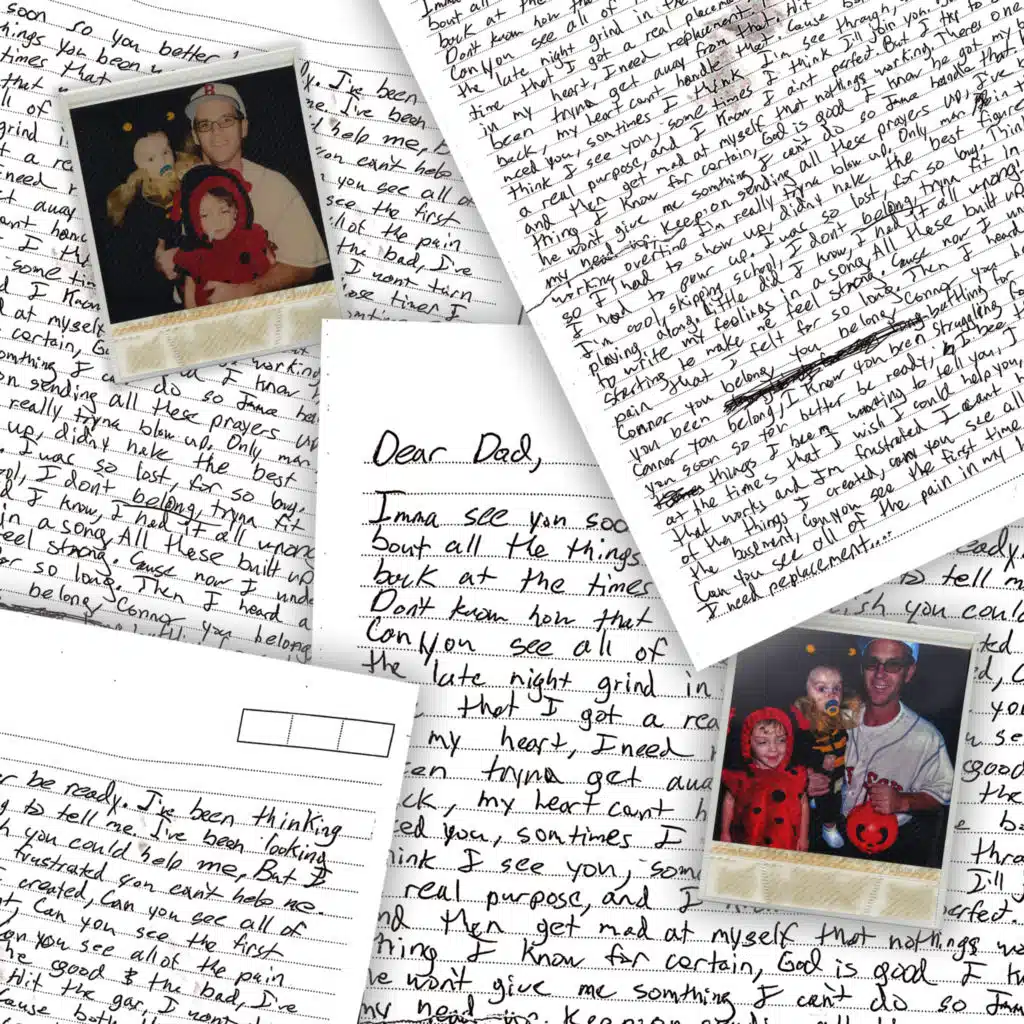 soon so you better
things you been
times that
all of
grind
t a re
need r
I've been
I've been
help me, B
you can't help
you see all
see the first
all of the pain
the bad, I've
I wont turn
those times I
get away
cant hand
I
some tim
d I Know
at myself
certain, Go
somthing I can't do so Imma
on sending all these prayers up
really tryna blow up, Only man
up, didn't have the best
I was so lost, for so long.
I dont belong, tryna fit
I know, I had it all wrong
in a song, All these built up
feel strong. Cause now I unde
for so long. Then I heard a
belong, Connor you belong
bout all the
back at the
Don't know how tha
Can you see all of
the late night grind in the
time that I got a real placement,
in my heart, I need replacement
been tryna get away from that. Hit
back, my heart cant handle that cause bo
need you, somtimes I think I'm see through,
think I see you, some times I think I'll join you,
a real purpose, and I Know I aint perfect. But I try to
and then get mad at myself that nothings working. There's one
thing I know for certain, God is good I know he got my
he won't give me somthing I can't do so Imma handle that
my need ins. Keep on sending all these prayers up, I've
working overtime I'm really tryna blow up, Only man
so I had to show up, didn't have the best figure
I had to pour up. I was so lost, for so long. Thin
I'm cool, skipping school, I don't belong, tryna fit in
playing along. Little did I know, I had it all wrong.
to write my feelings in a song, All these built up
starting to make me feel strong. Cause now I un
pain that I felt for so long. Then I heard
Connor you belong, you belong, Connor you be
you been battling for
Connor you belong, I know you been struggling for
you soon so you better be ready, I been
at the things I been wanting to tell you, I
the times that I wish I could help you,
that works and I'm frustrated I cant h
of the things I created, can you see all
the basement, Can you see the first time
Can you see all of the pain in my
I need replacement....
Dear Dad,
Imma see you soo
bout all the things
back at the times
Don't know how that
Can you see all of
the late night grind in
that I got a rea
my heart, I need
en tryna get awa
ck, my heart cant h
eed you, somtimes I
hink I see you, som
real purpose, and I
nd then get mad at myself that nothings wo
thing I Know for certain, God is good I k
he won't give me somthing I can't do so Imm
my need ins. Keep on sendi
r be ready. I've been thinking
g to tell me. I've been looking
h you could help me, But I
frustrated you can't help me.
I created, Can you see all of
nt, Can you see the first
an you see all of the pain
he good & the bad, I've
Hit the gas, I wont
ause both
eady.
to tell m
ish you coul
ted
d, C
you
u se
good
the
e b
thro
I'll
erfect.